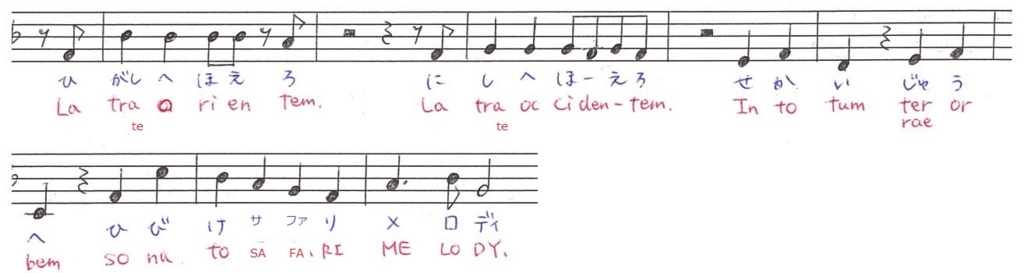 ひ がし へ ほ え ろ に し へ ほー え ろ せ か い じゅ う
La tra a ri en tem. La tra oc ci den-tem. In to tum ter or
te te rae
へ ひ び け サ ファ リ メ ロ ディ
bem so na to SA FA. RI ME LO DY.